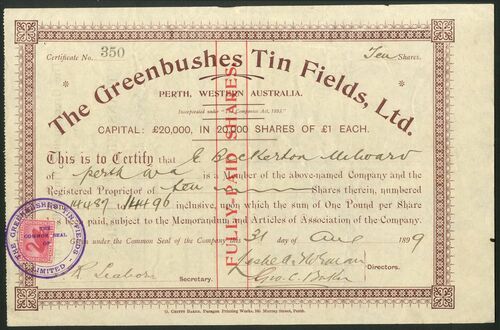 Certificate No. 350
Ten Shares.
The Greenbushes Tin Fields, Ltd.
PERTH, WESTERN AUSTRALIA.
Incorporated under "The Companies Act, 1893."
CAPITAL: £20,000, IN 20,000 SHARES OF £1 EACH.
FULLY-PAID SHARES
This is to Certify that E Bickerton Milward
of perth wa is a Member of the above-named Company and the
Registered Proprietor of ten Shares therein, numbered
14487 14496 inclusive, upon which the sum of One Pound per Share
paid, subject to the Memorandum and Articles of Association of the Company.
under the Common Seal of the Company this 31 day of Aug 1899
THE GREENBUSHES TIN FIELDS LIMITED
THE COMMON SEAL OF
Secretary.
Directors.
Paragon Printing Works, Murray Street, Perth.